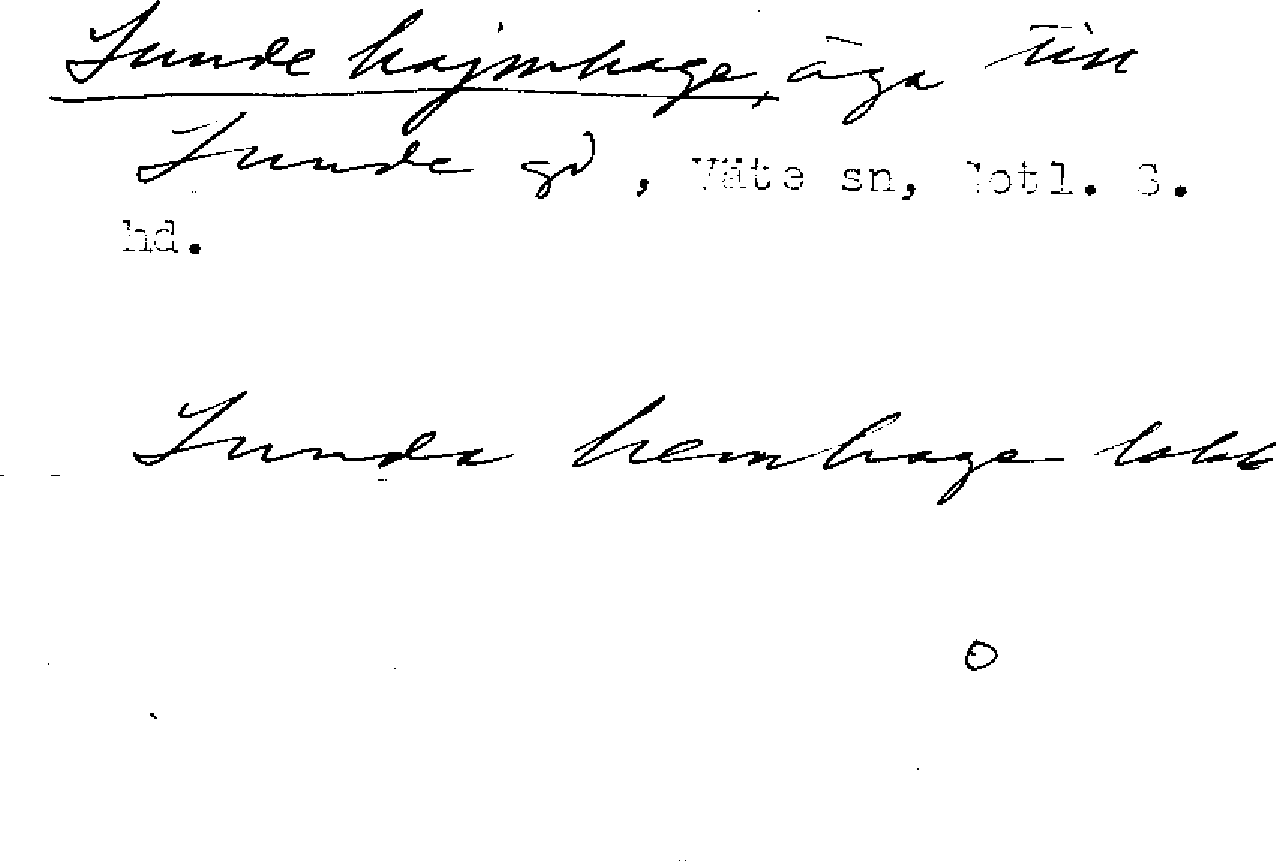 Sunde hajmhage, äga till
Sunde gd, Väte sn, Gotl. S.
hd.
Sunda hemhage